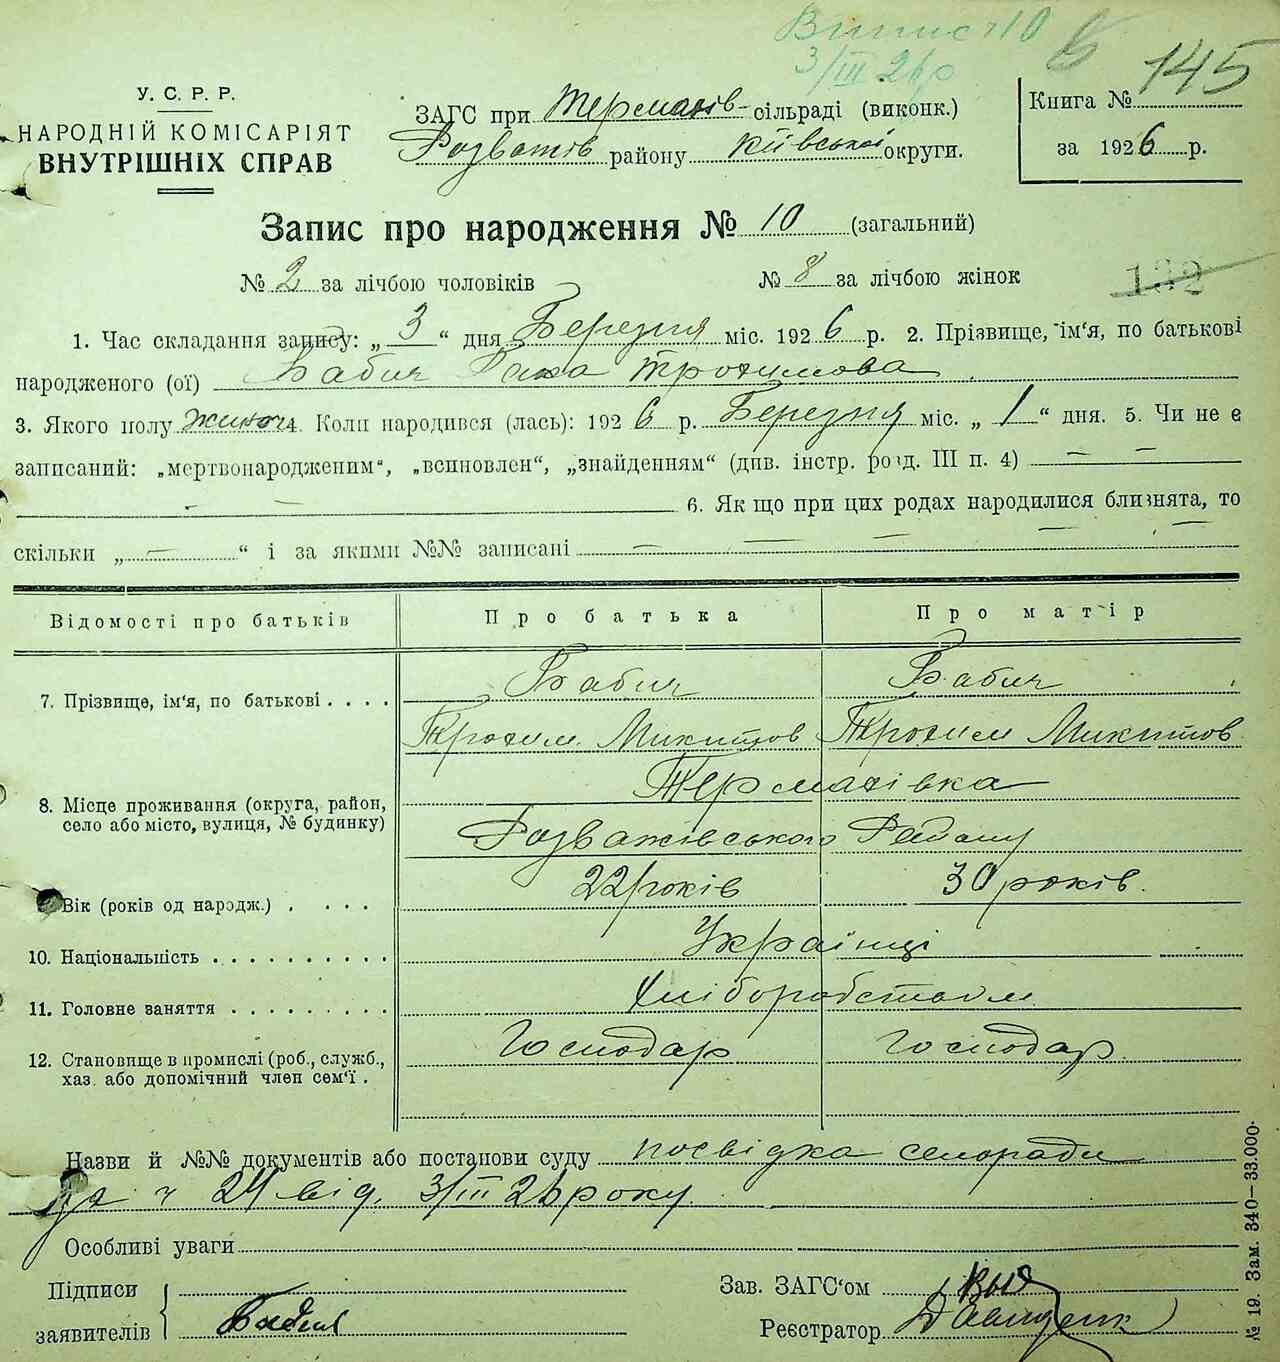 Випис ч 10
3/III 26 р
145
У. С. Р. Р.
НАРОДНІЙ КОМІСАРІЯТ
ВНУТРІШНІХ СПРАВ
ЗАГС при Термахів- сільраді (виконк.)
Розважів району Київської округи.
Книга №
за 1926 р.
Запис про народження № 10 (загальний)
№ 2 за лічбою чоловіків № 8 за лічбою жінок
132
1. Час складання запису: „ 3 “ дня Березня міс. 1926 р. 2. Прізвище, ім‘я, по батькові
народженого (ої) Бабич Трохимова
3. Якого полу жіноч 4. Коли народився (лась): 1926 р. Березня міс. „ 1 “ дня. 5. Чи не є
записаний: „мертвонародженим“, „всиновлен“, „знайденням“ (див. інстр. розд. III п. 4) — —
— 6. Як що при цих родах народилися близнята, то
скільки „ — “ і за якими №№ записані — — — — —
Відомості про батьків Про батька Про матір
7. Прізвище, ім‘я, по батькові . . . . Бабич Бабич
Трохим Микитов Трохим Микитов
8. Місце проживання (округа, район, село або місто, вулиця, № будинку) Термахівка
Розважівського Району
9. Вік (років од народж.) . . . . 22 років 30 років.
10. Національність . . . . . . . . . . Українці
11. Головне заняття . . . . . . . . . Хліборобством
12. Становище в промислі (роб., служб., Господар Господар
хаз. або допомічний член сем‘ї .
Назви й №№ документів або постанови суду посвідка сельради
за ч 24 від 3/III 26 року
Особливі уваги
Підписи
заявителів Бабич
Зав. ЗАГС‘ом
Реєстратор
№ 19. Зам. 340—33.000.